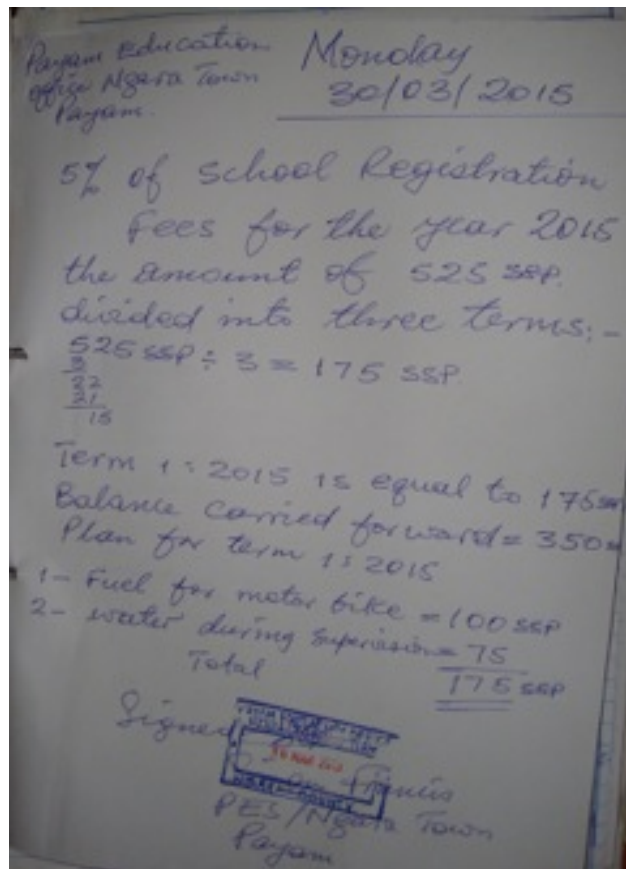 Payam Education
office Ngara Town
Payam.
Monday
30/03/2015
5% of School Registration
Fees for the year 2015
the amount of 525 SSP.
divided into three terms:-
525 SSP ÷ 3 = 175 SSP.
3
22
21
15
Term 1: 2015 is equal to 175 SSP
Balance carried forward = 350
Plan for term 1: 2015
1- Fuel for motor bike = 100 SSP
2- water during Supervision = 75
Total 175 SSP
Signed
Francis
PES/Ngara Town
Payam